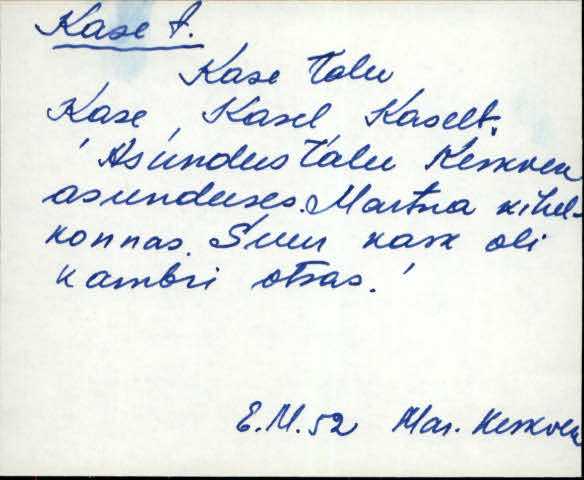 Kase t.
Kase Talu
Kase, Kasel Kaselt.
'Asundus Talu Keskvere
asunduses. Martna kihel-
konnas. Suur kask oli
kambri otsas.'
E.M. 52 Mar. Keskvere